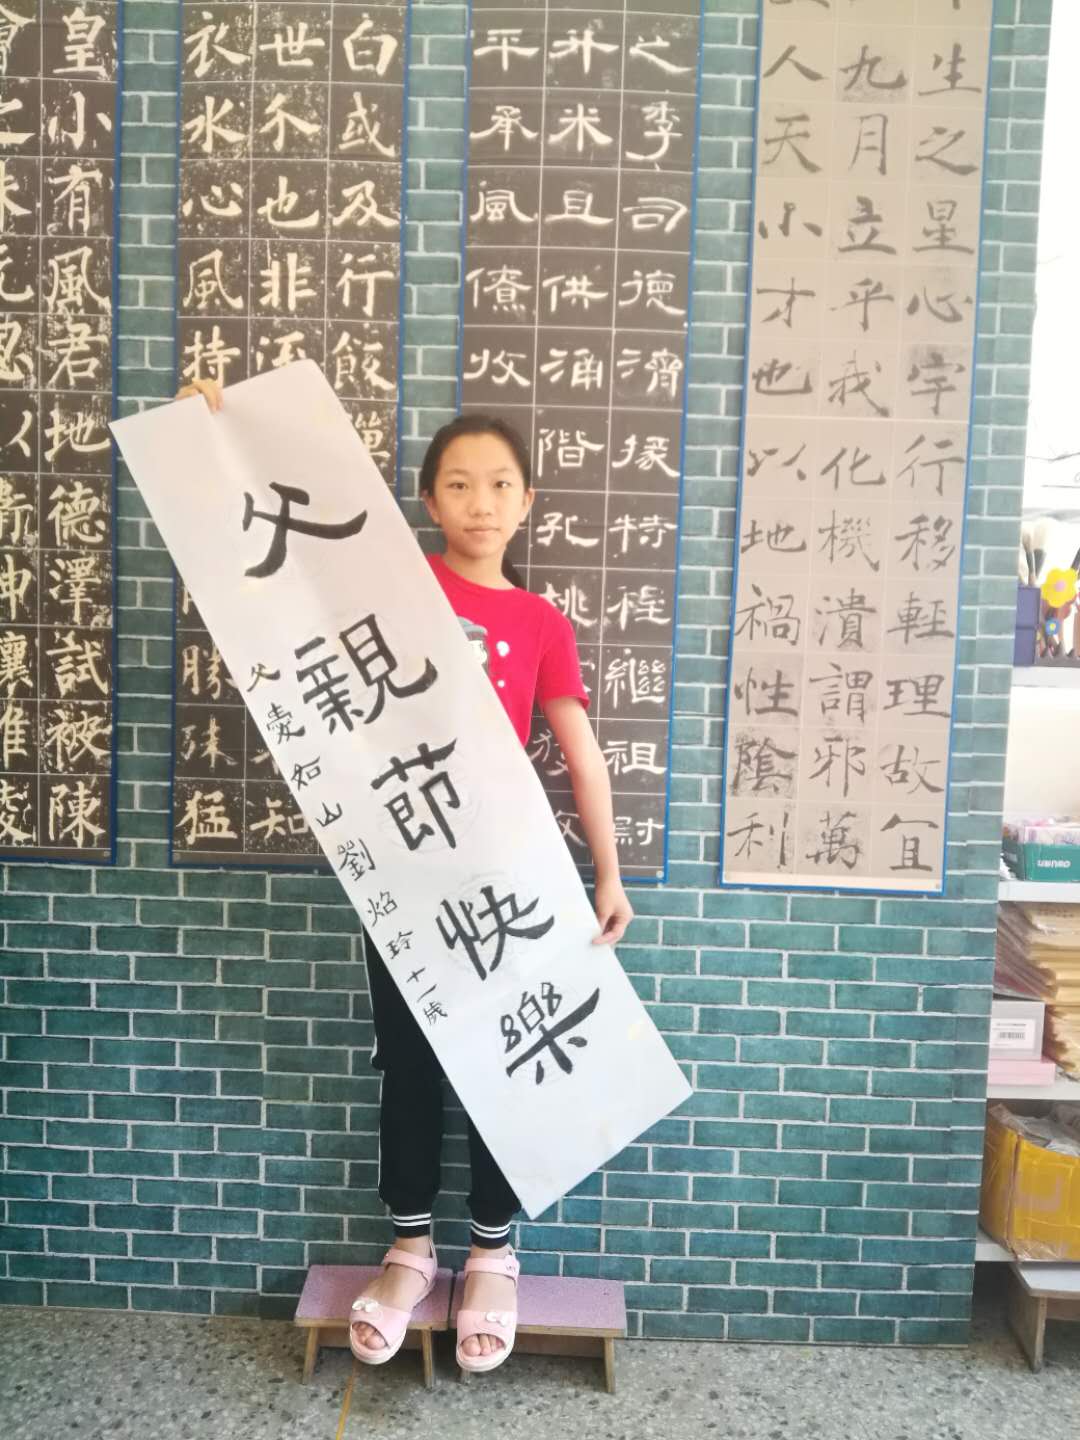 父親節快樂
父愛如山劉焰玲十一歲
生之星心宇行移輕理故宜
九月立乎我化機潰謂邪萬
人天小才也以地禍性陰利
之季司德濟掾特程繼祖尉
升米且供涌階孔桃
平承風僚收
白或及行
世不也非知
衣水心風持勝殊猛
皇小有風君地德澤試被陳
會之